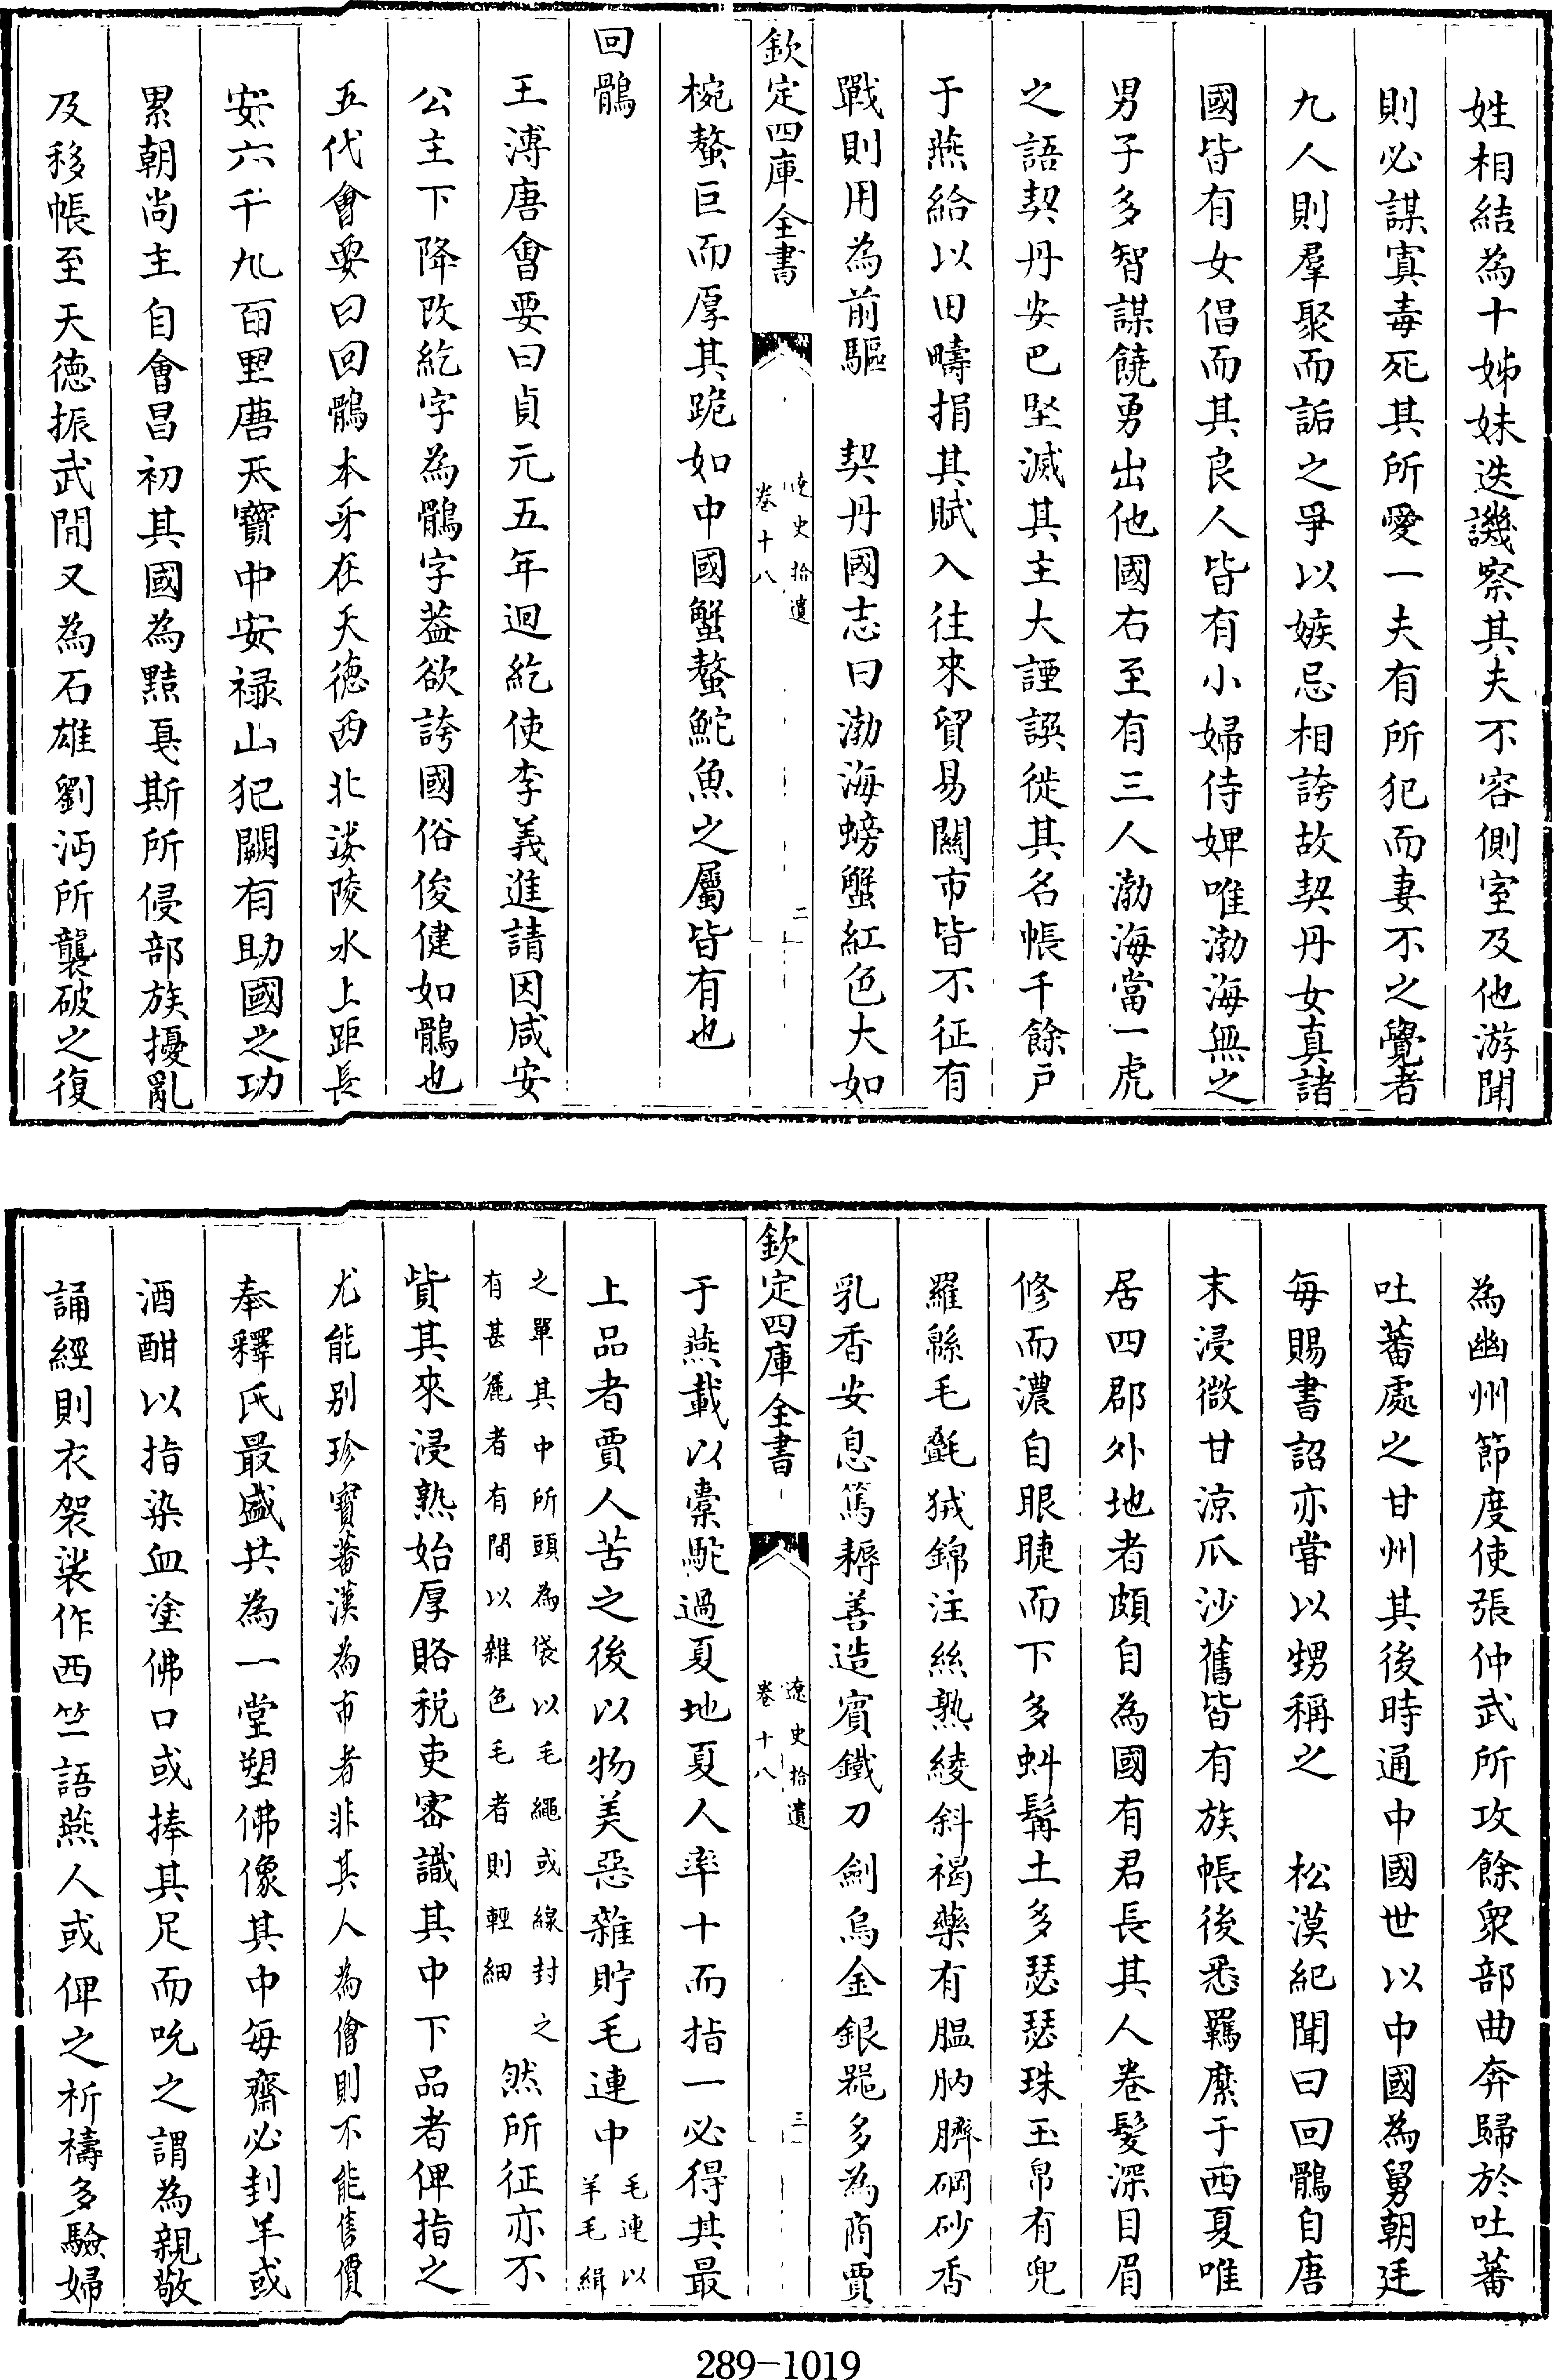 姓相結為十姊妹迭譏察其夫不容側室及他游聞
則必謀寘毒死其所愛一夫有所犯而妻不之覺者
九人則羣聚而詬之爭以嫉忌相誇故契丹女真諸
國皆有女倡而其良人皆有小婦侍婢唯渤海無之
男子多智謀饒勇出他國右至有三人渤海當一虎
之語契丹安巴堅滅其主大諲譔徙其名帳千餘戶
于燕給以田疇捐其賦入往來貿易關市皆不征有
戰則用為前驅　契丹國志曰渤海螃蟹紅色大如
欽定四庫全書
遼史拾遺
卷十八
二
椀螯巨而厚其跪如中國蟹螯鮀魚之屬皆有也
回鶻
王溥唐會要曰貞元五年迴紇使李義進請因咸安
公主下降改紇字為鶻字葢欲誇國俗俊健如鶻也
五代會要曰回鶻本牙在天德西北娑陵水上距長
安六千九百里唐天寶中安祿山犯闕有助國之功
累朝尚主自會昌初其國為黠戛斯所侵部族擾亂
及移帳至天德振武間又為石雄劉沔所襲破之復
為幽州節度使張仲武所攻餘衆部曲奔歸於吐蕃
吐蕃處之甘州其後時通中國世以中國為舅朝廷
每賜書詔亦嘗以甥稱之　松漠紀聞曰回鶻自唐
末浸微甘涼瓜沙舊皆有族帳後悉羈縻于西夏唯
居四郡外地者頗自為國有君長其人卷髮深目眉
修而濃自眼睫而下多虯髯土多瑟瑟珠玉帛有兜
羅緜毛㲲狨錦注絲熟綾斜褐藥有膃肭臍硇砂香
乳香安息篤耨善造賓鐵刀劍烏金銀器多為商賈
欽定四庫全書
遼史拾遺
卷十八
三
于燕載以橐駝過夏地夏人率十而指一必得其最
上品者賈人苦之後以物美惡雜貯毛連中毛連以羊毛緝
之單其中所頭為袋以毛繩或線封之有甚麤者有間以雜色毛者則輕細然所征亦不
貲其來浸熟始厚賂税吏密識其中下品者俾指之
尤能别珍寶蕃漢為市者非其人為儈則不能售價
奉釋氏最盛共為一堂塑佛像其中每齋必刲羊或
酒酣以指染血塗佛口或捧其足而吮之謂為親敬
誦經則衣袈裟作西竺語燕人或俾之祈禱多驗婦
289-1019